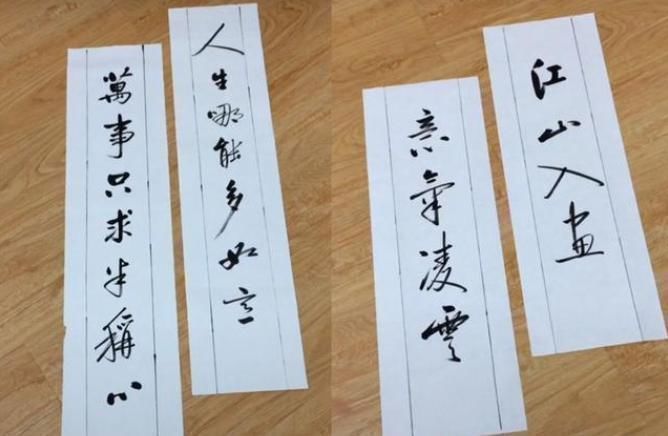 人生哪能多如意
萬事只求半稱心
江山入畫
意氣凌雲